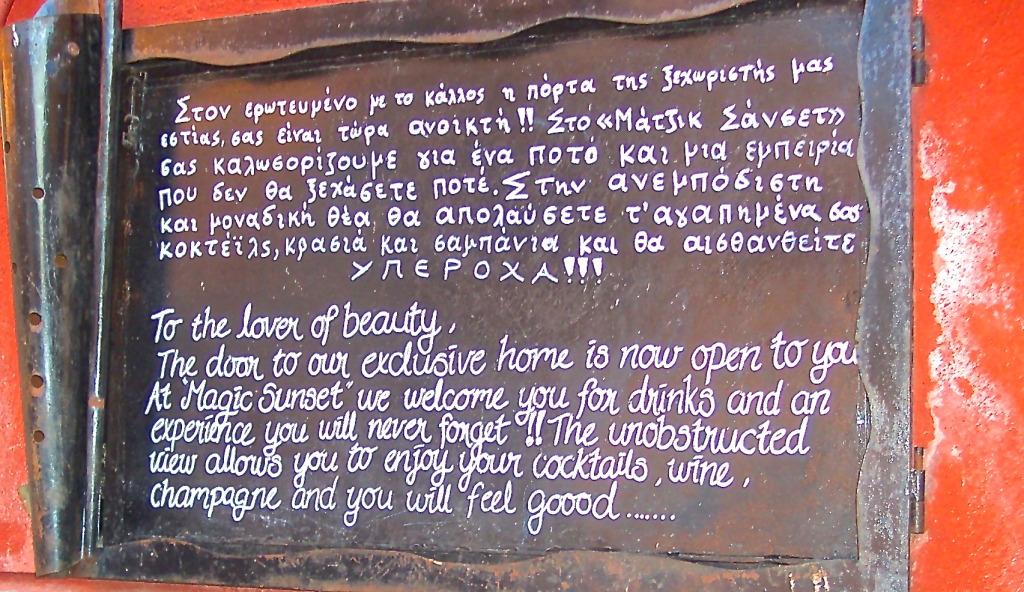 Στον ερωτευμένο με το κάλλος η πόρτα της ξεχωριστής μας
εστίας, σας είναι τώρα ανοικτή!! Στο «Μάτζικ Σάνσετ»
σας καλωσορίζουμε για ένα ποτό και μια εμπειρία
που δεν θα ξεχάσετε ποτέ. Στην ανεμπόδιστη
και μοναδική θέα θα απολαύσετε τ'αγαπημένα σας
κοκτέϊλς, κρασιά και σαμπάνια και θα αισθανθείτε
ΥΠΕΡΟΧΑ!!!
To the lover of beauty,
The door to our exclusive home is now open to you
At "Magic Sunset" we welcome you for drinks and an
experience you will never forget !! The unobstructed
view allows you to enjoy your cocktails, wine,
champagne and you will feel goood.......